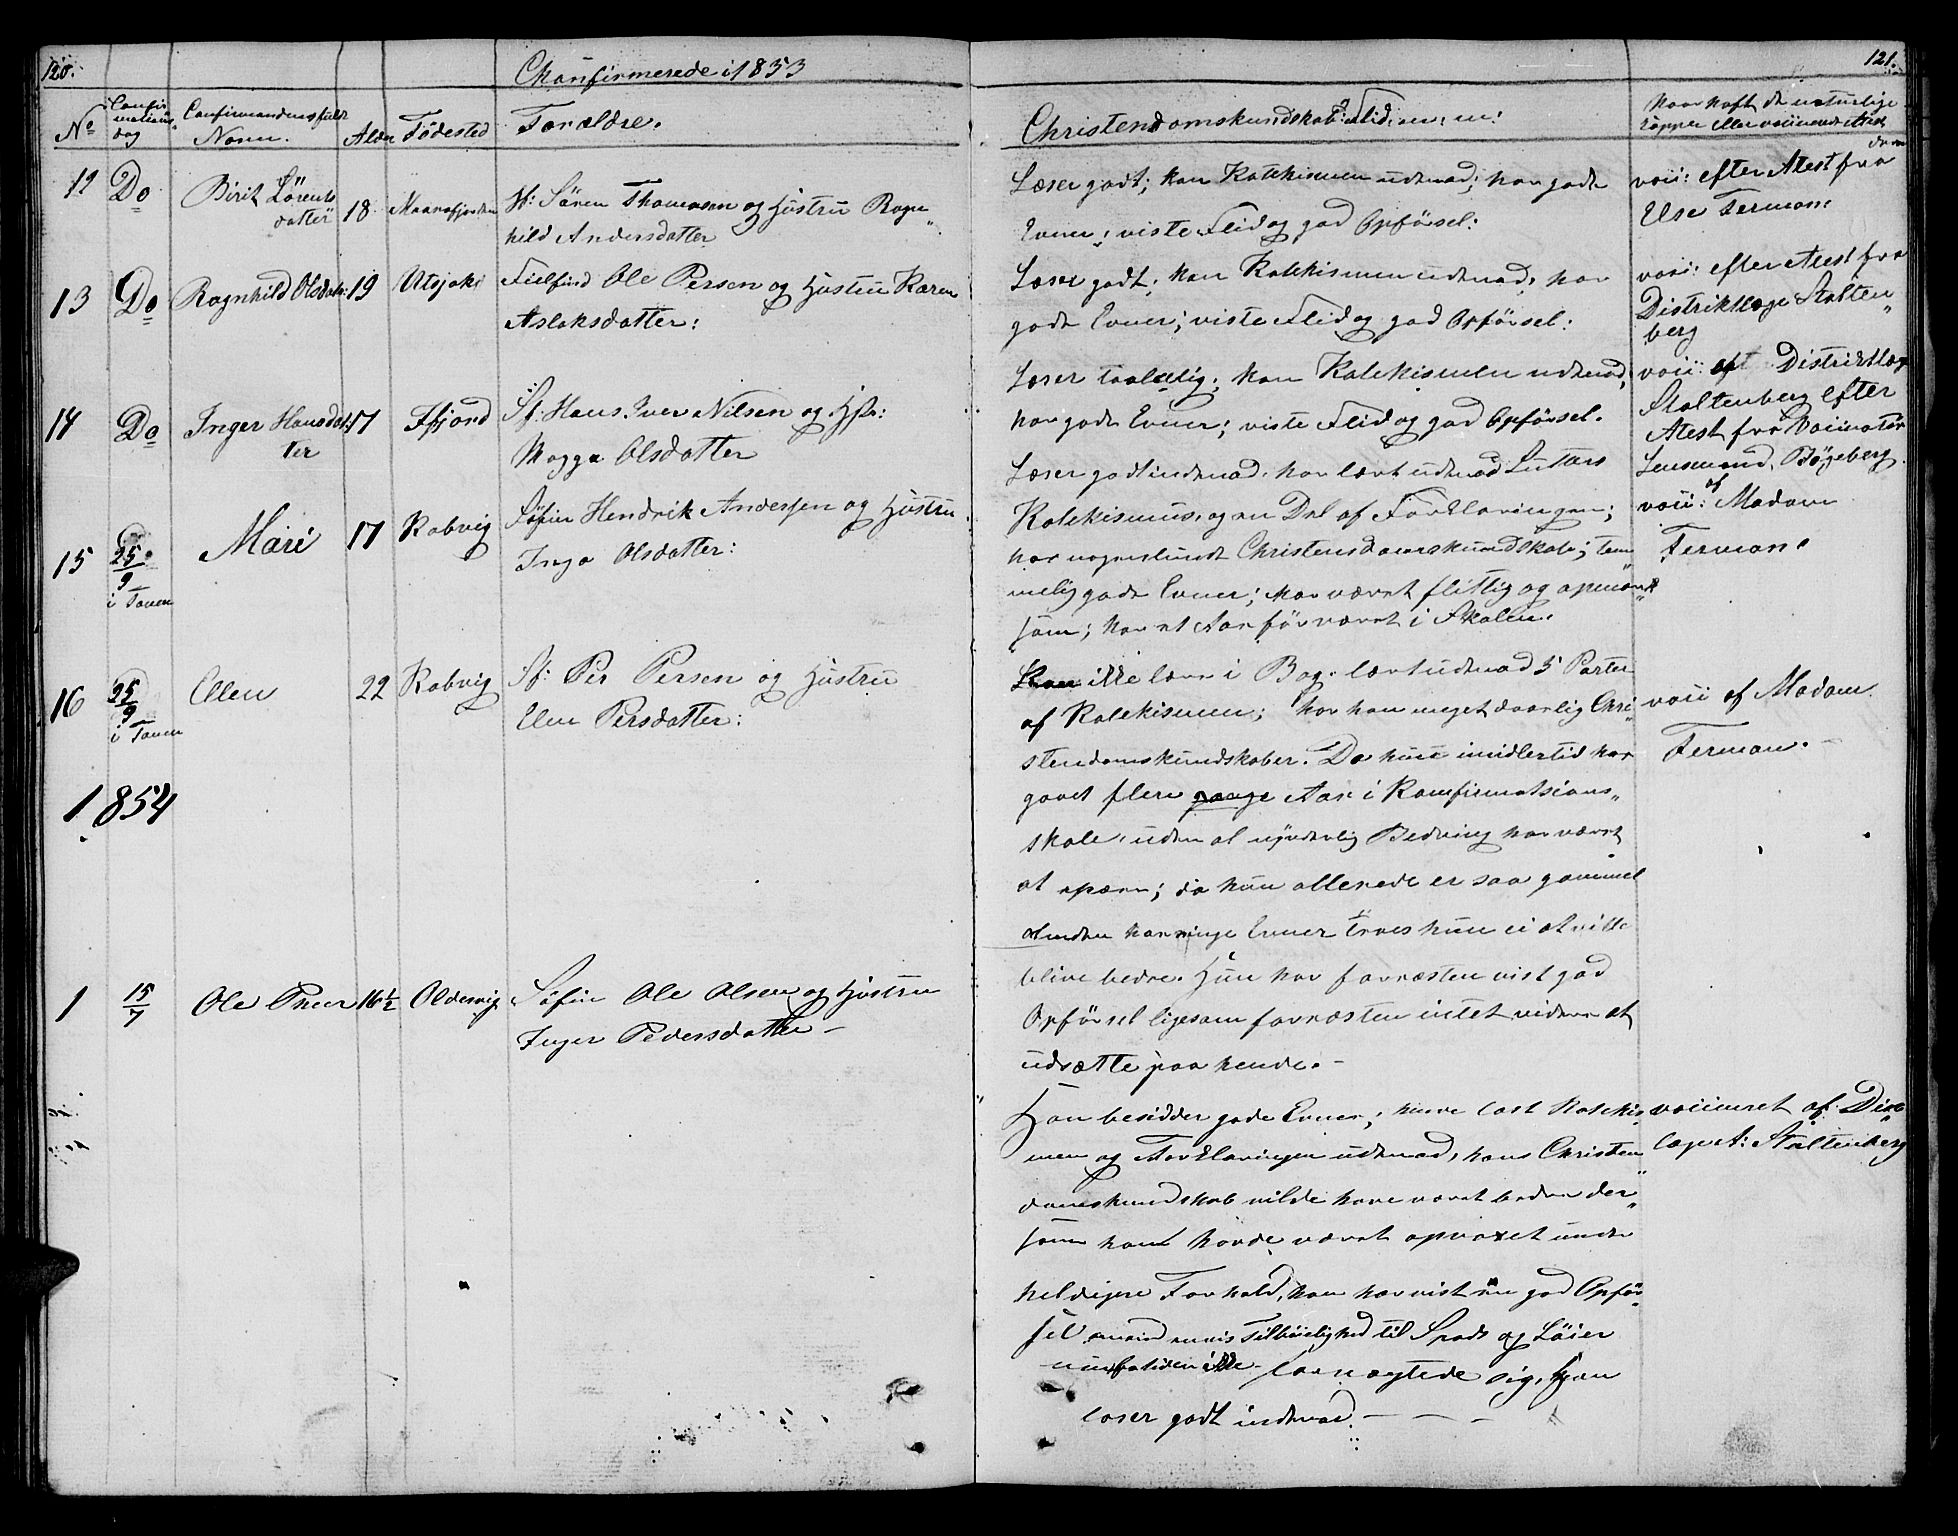 120.
Chonfirmerede i 1853
No
Confir
mations
dag
Confirmandens fulde
Navn.
Alder
Fødested
Forældre.
12 Do Birit Sørens
datter 18 H: Sören Thomesen og Hustru Ragn
hild Andersdatter
13 Do Ragnhild Olsdatr: 19 Utsjoki Fielfind Ole Persen og Hustru Karen
Aslaksdatter:
14 Do Inger Hansdat
ter 17 Sf: Hans Iver Nilsen og Hstr:
Magga Olsdatter
15 25/9
i Tanen Mari 17 Rabvig Søfin Hendrik Andersen og Hustru
Inga Olsdatter:
16 25/9
i Tanen Ellen 22 Rabvig Sf: Per Persen og Hustru
Elen Persdatter:
1854
1 15/7 Ole Peder 16½ Oldervig Søfin Ole Olsen og Hustru
Inger Pedersdatter –
121.
Christendomskundskab: Flid: m: m:
Naar haft de naturlige
Kopper eller vaccineret Atest
derom
Læser godt; kan Katekismen udenad; har gode
Evner; viste Flid og god Opförsel:
vacc: efter Atest fra
Else Ferman:
Læser godt; kan Katekismen udenad; har
gode Evner; viste Flid og god Opförsel:
vacc: efter Atest fra
Distriktlæge Stolten
berg
Læser taalelig; kan Katekismen udenad;
har gode Evner; viste Flid og god Opförsel.
vacc: af Distriktlæge
Stoltenberg efter
Atest fra Vaccinatör
Lensmand Bögeberg.
Læser godt indenad, har lært udenad Luttars
Katekismus, og en Del af Forklaringen;
har nogenlunde Christendomskundskab; tem
melig gode Evner; har været flittig og opmærk
som; har et Aar för været i Skolen.
vacc: af Madam
Ferman.
Kan ikke læse i Bog. lært udenad 5 Parter
af Katekismen; har kun meget daarlig Chri
stendomskundskaber. Da hun imidlertid har
gaaet flere gange Aar i Konfirmatsions
skole, uden at synderlig Bedring har været
at spore; da hun allerede er saa gammel
desuden har ringe Evner troes hun ei at ville
blive bedre. Hun har forresten vist god
Opförsel ligesom forresten intet videre at
udsætte paa hende. –
vacc af Madam
Ferman. –
Han besidder gode Evner; have læst Katekis
men og Forklaringen udenad, hans Christen
domskundskab vilde have været bedre der
som han havde været opvoxet under
heldigere Forhold, han har vist en god Opför
sel omend hans Tilböielighed til Spads og Löier
undertiden ikke fornægtede sig. Han
læser godt indenad. –
vaccineret af Dis
læge A: Stoltenberg